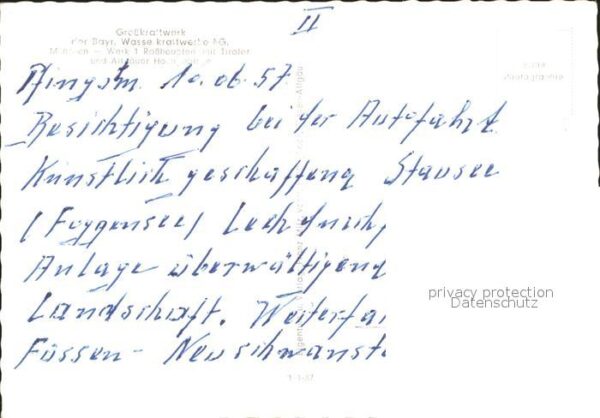 II
Großkraftwerk
der Bayr. Wasserkraftwerke AG,
München – Werk 1 Roßhaupten mit Tiroler
und Allgäuer
Pfingstm. 10.06.57
Besichtigung bei der Autofahrt
Künstlich geschaffeng Stausee
(Foggensee) Lech durch,
Anlage überwältigend
Landschaft. Weiterfa
Füssen - Neuschwanst.
privacy protection
Datenschutz